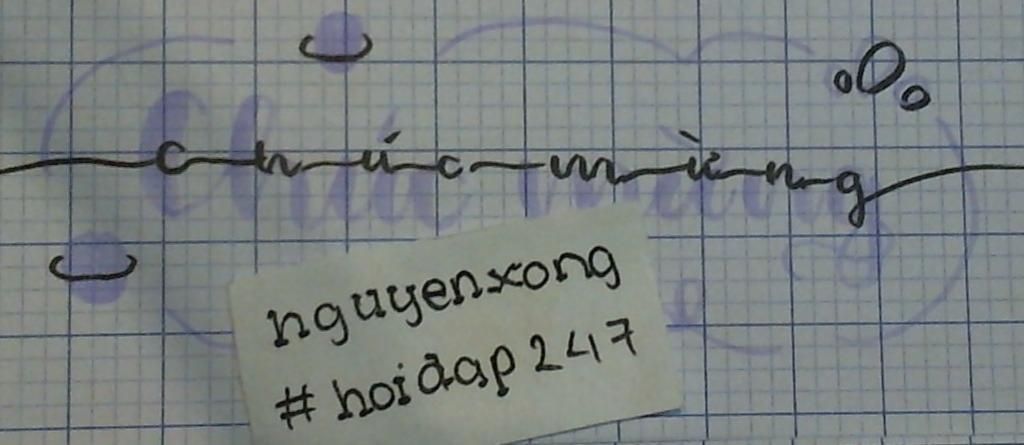 chúc mừng
nguyenxong
#hoidap247